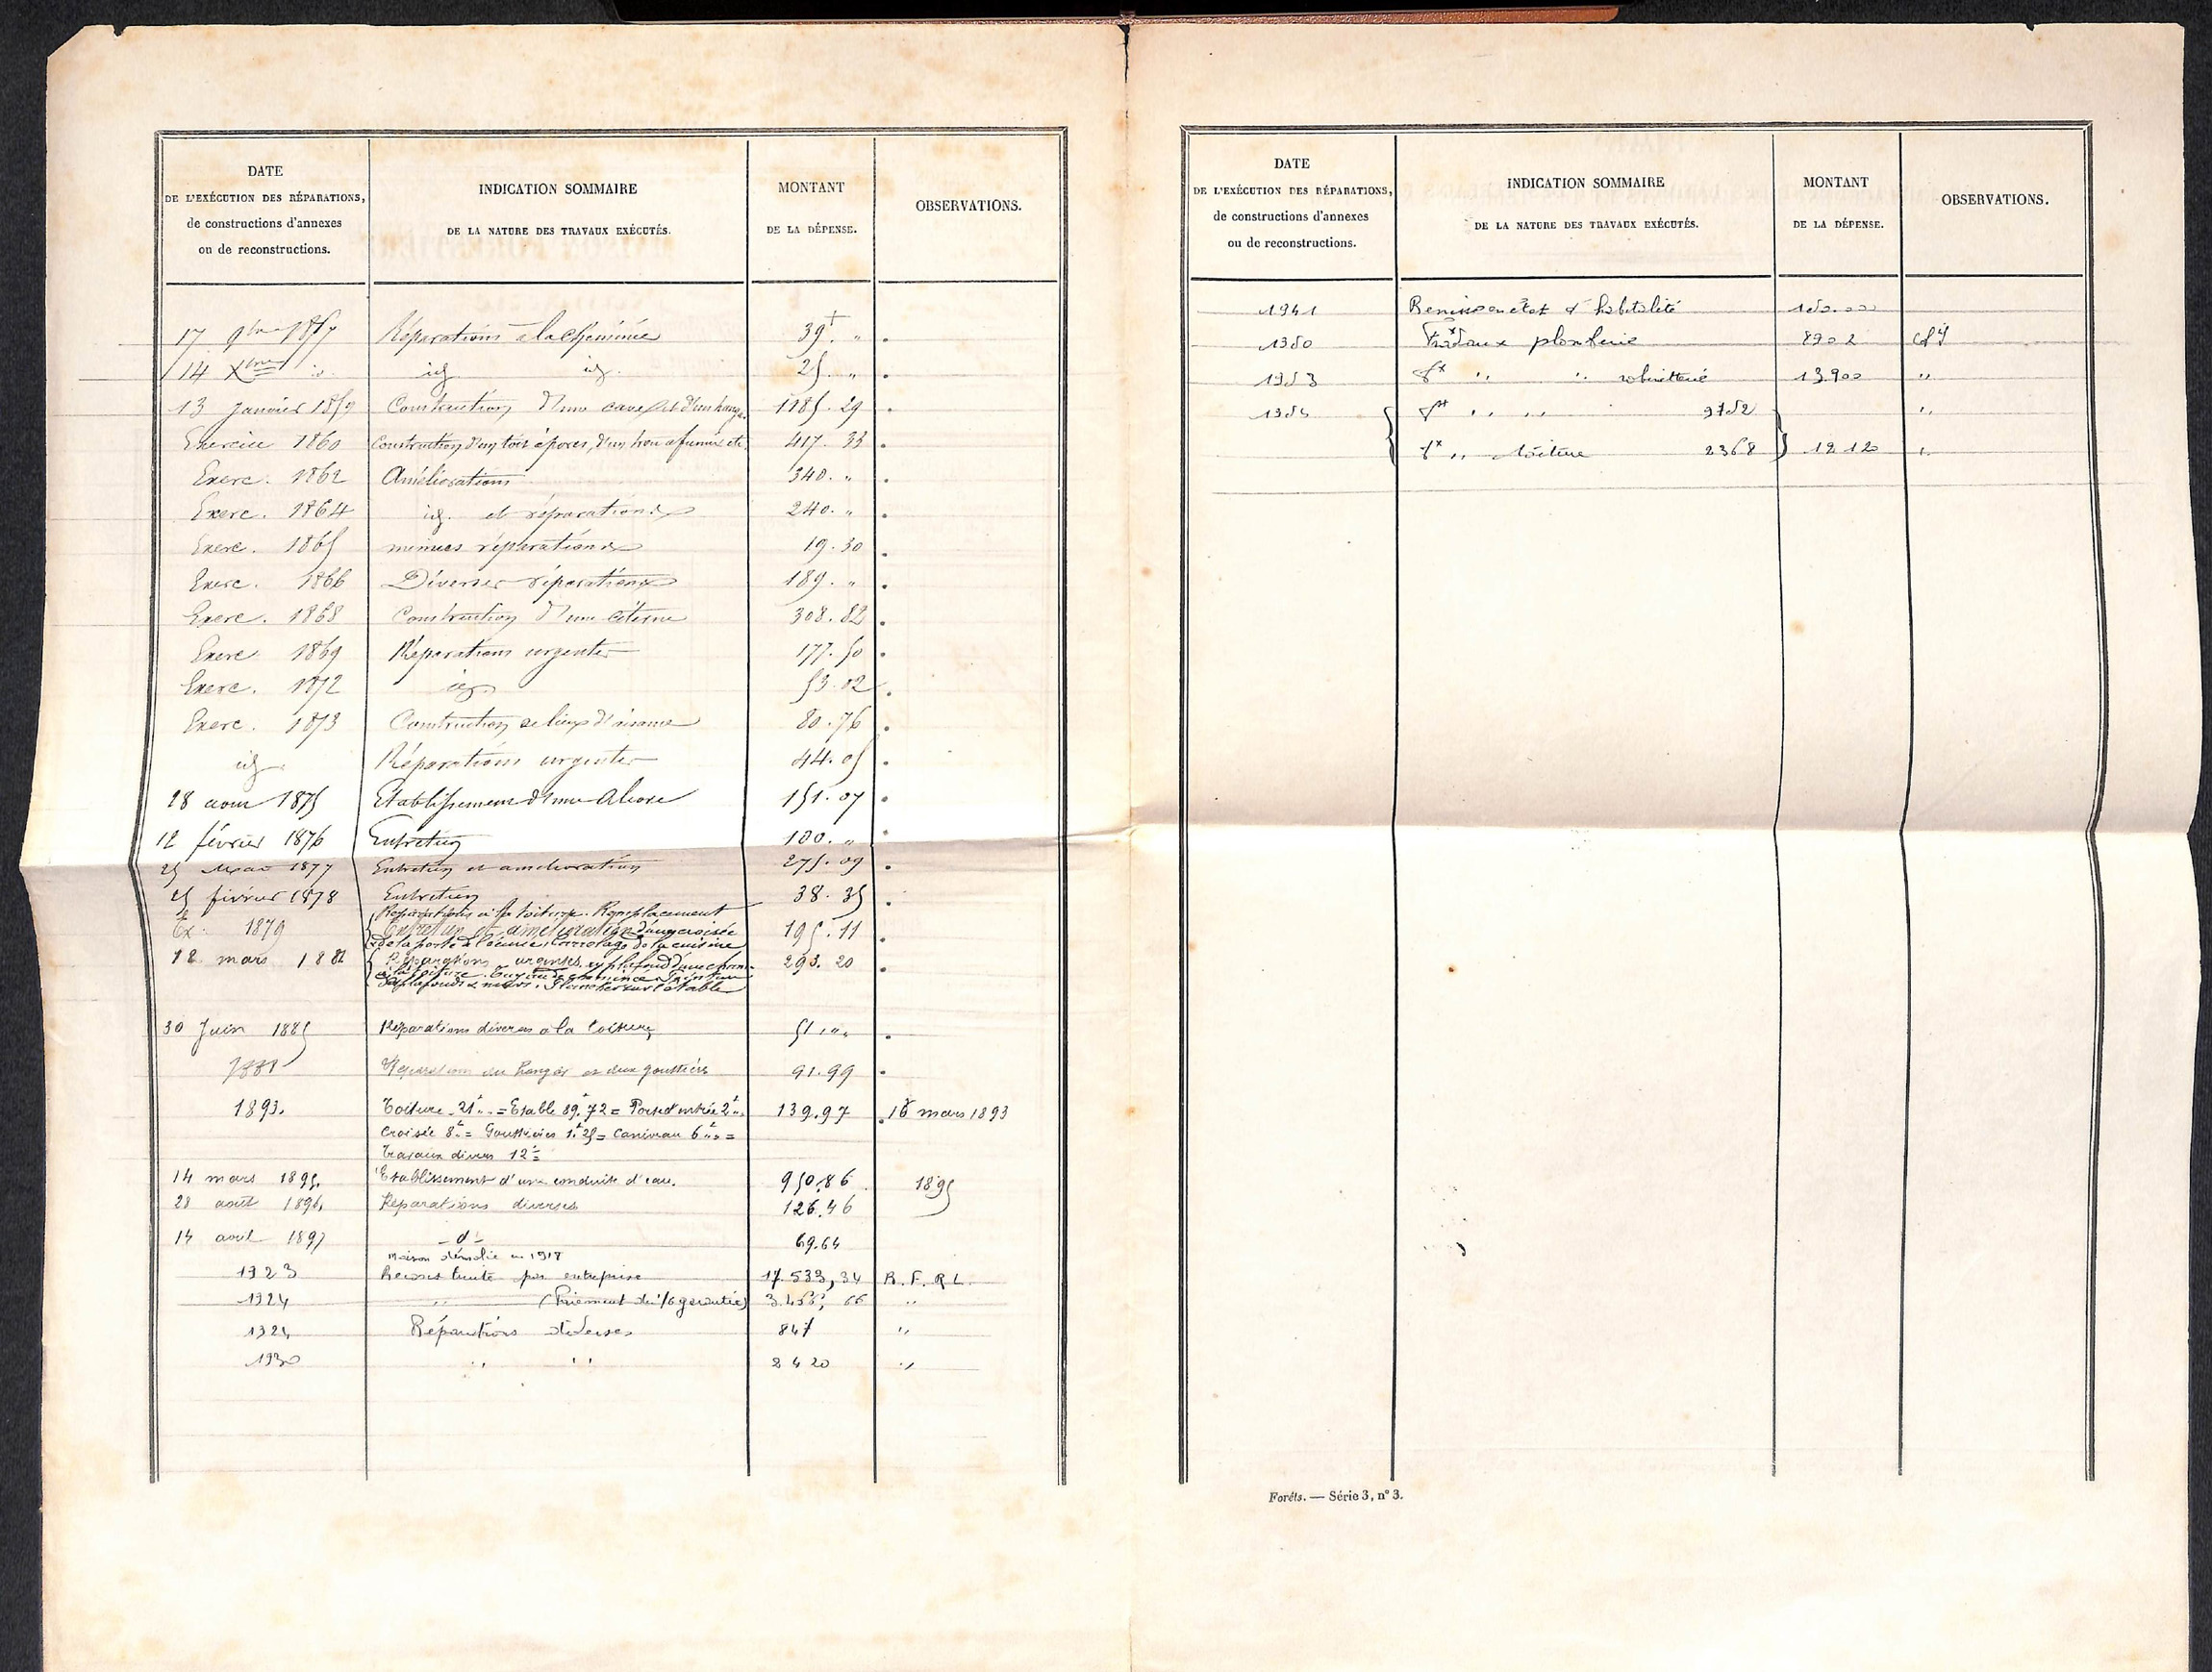 DATE
DE L'EXÉCUTION DES RÉPARATIONS,
de constructions d'annexes
ou de reconstructions.
INDICATION SOMMAIRE
DE LA NATURE DES TRAVAUX EXÉCUTÉS.
MONTANT
DE LA DÉPENSE.
OBSERVATIONS.
17 9bre 1857 Réparations à la cheminée 39f. "
14 Xbre id. id id. 25. "
13 Janvier 1859 Construction d'une cave et d'un hangar 1185. 29
Exercice 1860 Construction d'un toit à porcs, d'un trou à fumier etc. 417. 33
Exerc. 1862 Améliorations 340. "
Exerc. 1864 id. et réparations 240. "
Exerc. 1865 menues réparations 19. 30
Exerc. 1866 Diverses réparations 189. "
Exerc. 1868 Construction d'une citerne 308. 82
Exerc 1869 Réparations urgentes 177. 50
Exerc. 1872 id. 53. 02
Exerc. 1873 Construction de lieux d'aisance 80. 76
id. Réparations urgentes 44. 05
28 aout 1875 Etablissement d'une 151. 07
12 février 1876 Entretien 100. "
25 Mai 1877 Entretien et amélioration 275. 09
25 février 1878 Entretien 38. 35
Réparations à la toiture. Remplacement
Ex. 1879 Entretien et amélioration d'une croisée 195. 11
de la porte de l'écurie, carrelage de la cuisine
12 mars 1882 Réparations urgentes au plafond d'une 293. 20
à la toiture. Tuyau de cheminée. Peinture
des plafonds & murs. Plancher sur l'étable
30 Juin 1885 Réparations diverses à la toiture 51 ,"
1888 Réparation du hangar et des gouttières 91. 99
1893. Toiture 21f." = Etable 89.f72 = Porte d'entrée 2f." 139.97 16 mars 1893
Croisée 8f." = Gouttières 1.f25 = Caniveau 6f." =
Travaux divers 12f=
14 mars 1895. Etablissement d'une conduite d'eau. 950.86 1895
28 août 1896, Réparations diverses 126.46
14 aout 1897 - do - 69.64
Maison démolie en 1917
1923 Reconstruite par entreprise 17.533,34 R. F. R L.
1924 " (Paiement du 1/6 garantie) 3.456, 66 "
1924 Réparations diverses 847 "
1930 " " 2420 "
DATE
DE L'EXÉCUTION DES RÉPARATIONS,
de constructions d'annexes
ou de reconstructions.
INDICATION SOMMAIRE
DE LA NATURE DES TRAVAUX EXÉCUTÉS.
MONTANT
DE LA DÉPENSE.
OBSERVATIONS.
1941 Remise en état d'habitalité 150.000
1950 Travaux plomberie 8902
1953 Tx " " robinetterie 13.900 "
1954 Tx " " " 9752 "
Tx " toiture 2368 12 120 "
Forêts. — Série 3, n° 3.